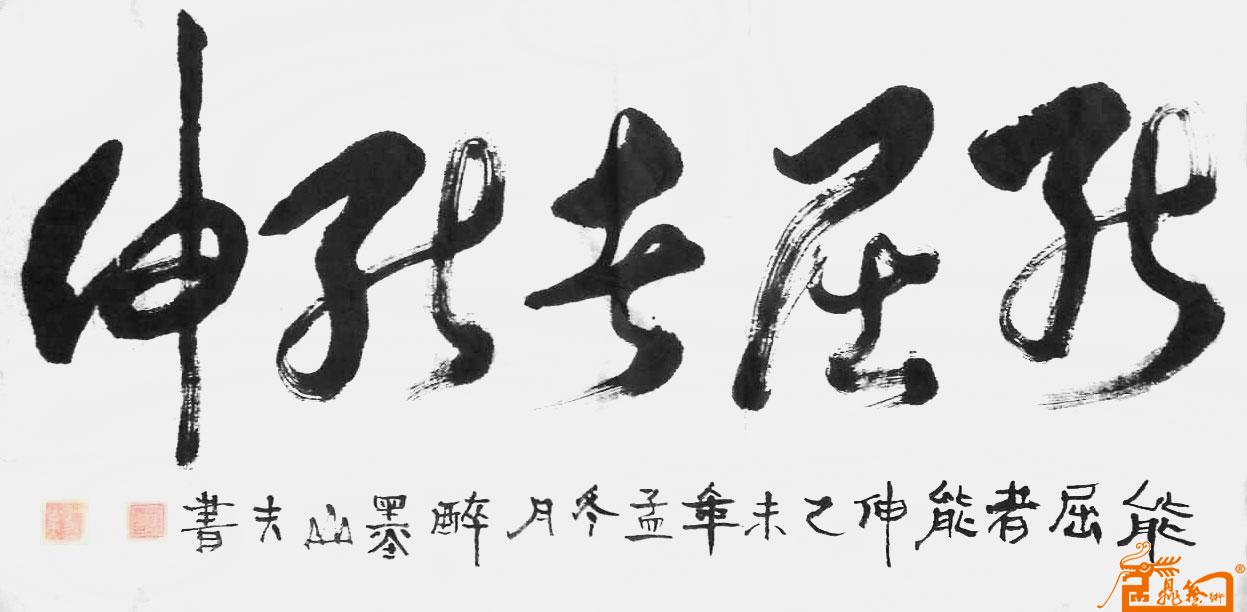 能屈者能伸
能屈者能伸乙未年孟冬月醉墨山夫書